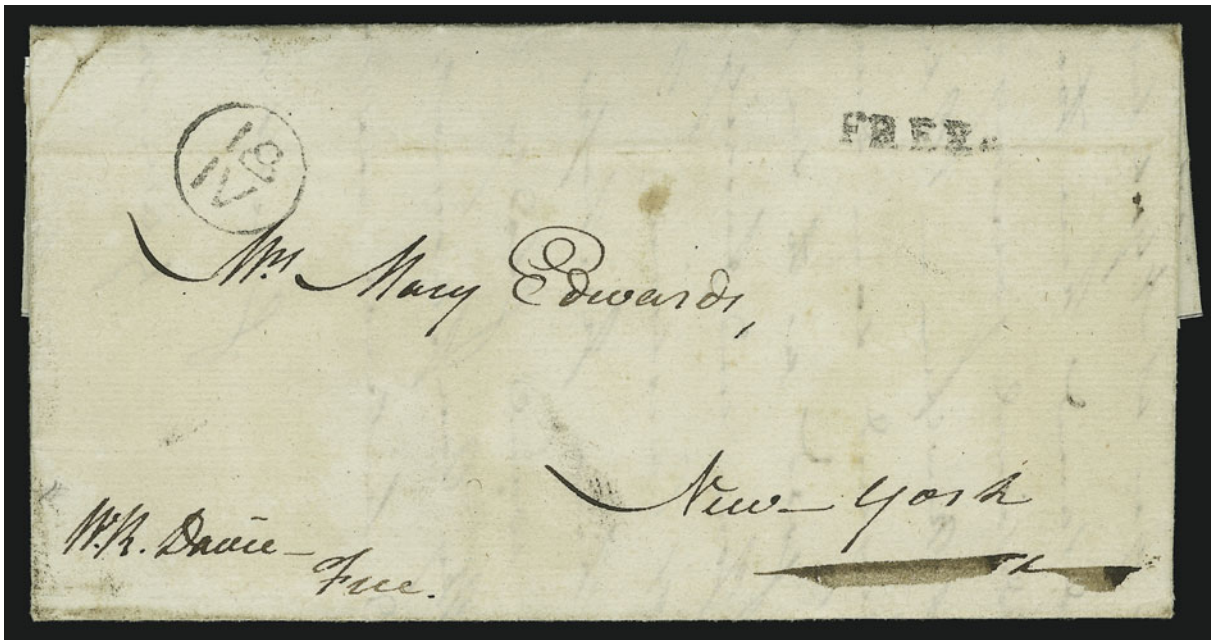 FREE.
Mrs Mary Edwards,
New-York
W. R. Davie-
Free.